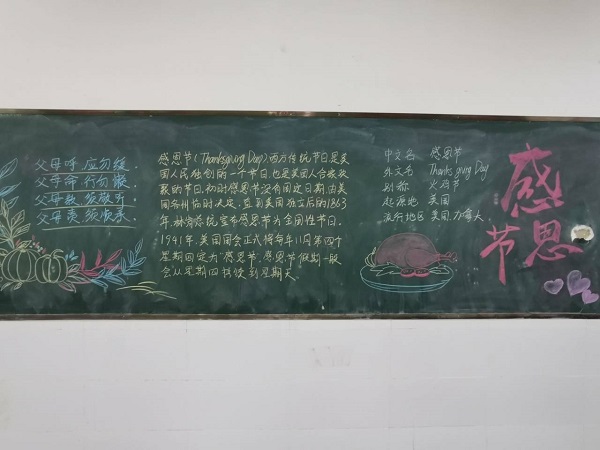 父母呼 应勿缓.
父母命 行勿懒.
父母教 须敬听
父母责 须顺承.
感恩节(Thanksgiving Day),西方传统节日,是美
国人民独创的一个节日,也是美国人合家欢
聚的节日,初时感恩节没有固定日期,由美
国各州临时决定,直到美国独立后的1863
年,林肯总统宣布感恩节为全国性节日.
1941年,美国国会正式将每年11月第四个
星期四定为"感恩节".感恩节假期一般
会从星期四持续到星期天.
中文名 感恩节
外文名 Thanksgiving Day
别称 火鸡节
起源地 美国
流行地区 美国、加拿大.
感恩
节